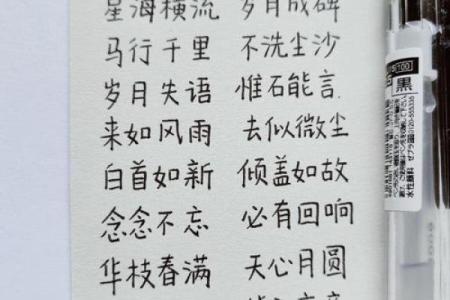 星海横流 岁月成碑
马行千里 不洗尘沙
岁月失语 惟石能言.
来如风雨 去似微尘
白首如新 倾盖如故
念念不忘 必有回响
华枝春满 天心月圆
黒